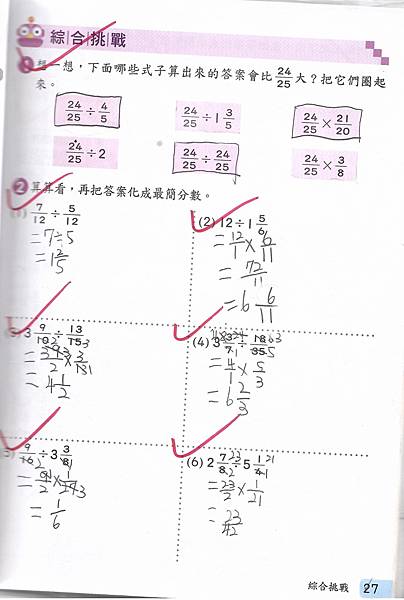 綜合挑戰
❶ 想一想，下面哪些式子算出來的答案會比 24/25 大？把它們圈起
來。
24/25 ÷ 4/5　24/25 ÷ 1 3/5　24/25 × 21/20
24/25 ÷ 2　24/25 ÷ 24/25　24/25 × 3/8
❷ 算算看，再把答案化成最簡分數。
(1) 7/12 ÷ 5/12
= 7÷5
= 1 2/5
(2) 12 ÷ 1 5/6
= 12/1 × 6/11
= 72/11
= 6 6/11
3 9/10 ÷ 13/15
= 4 1/2
(4)
= 4/1 × 5/3
= 6 2/3
÷ 3 3/8
= 1/6
(6) 2 7/8 ÷ 5 1/4
= 23/2 × 1/21
= 23/42
綜合挑戰 27